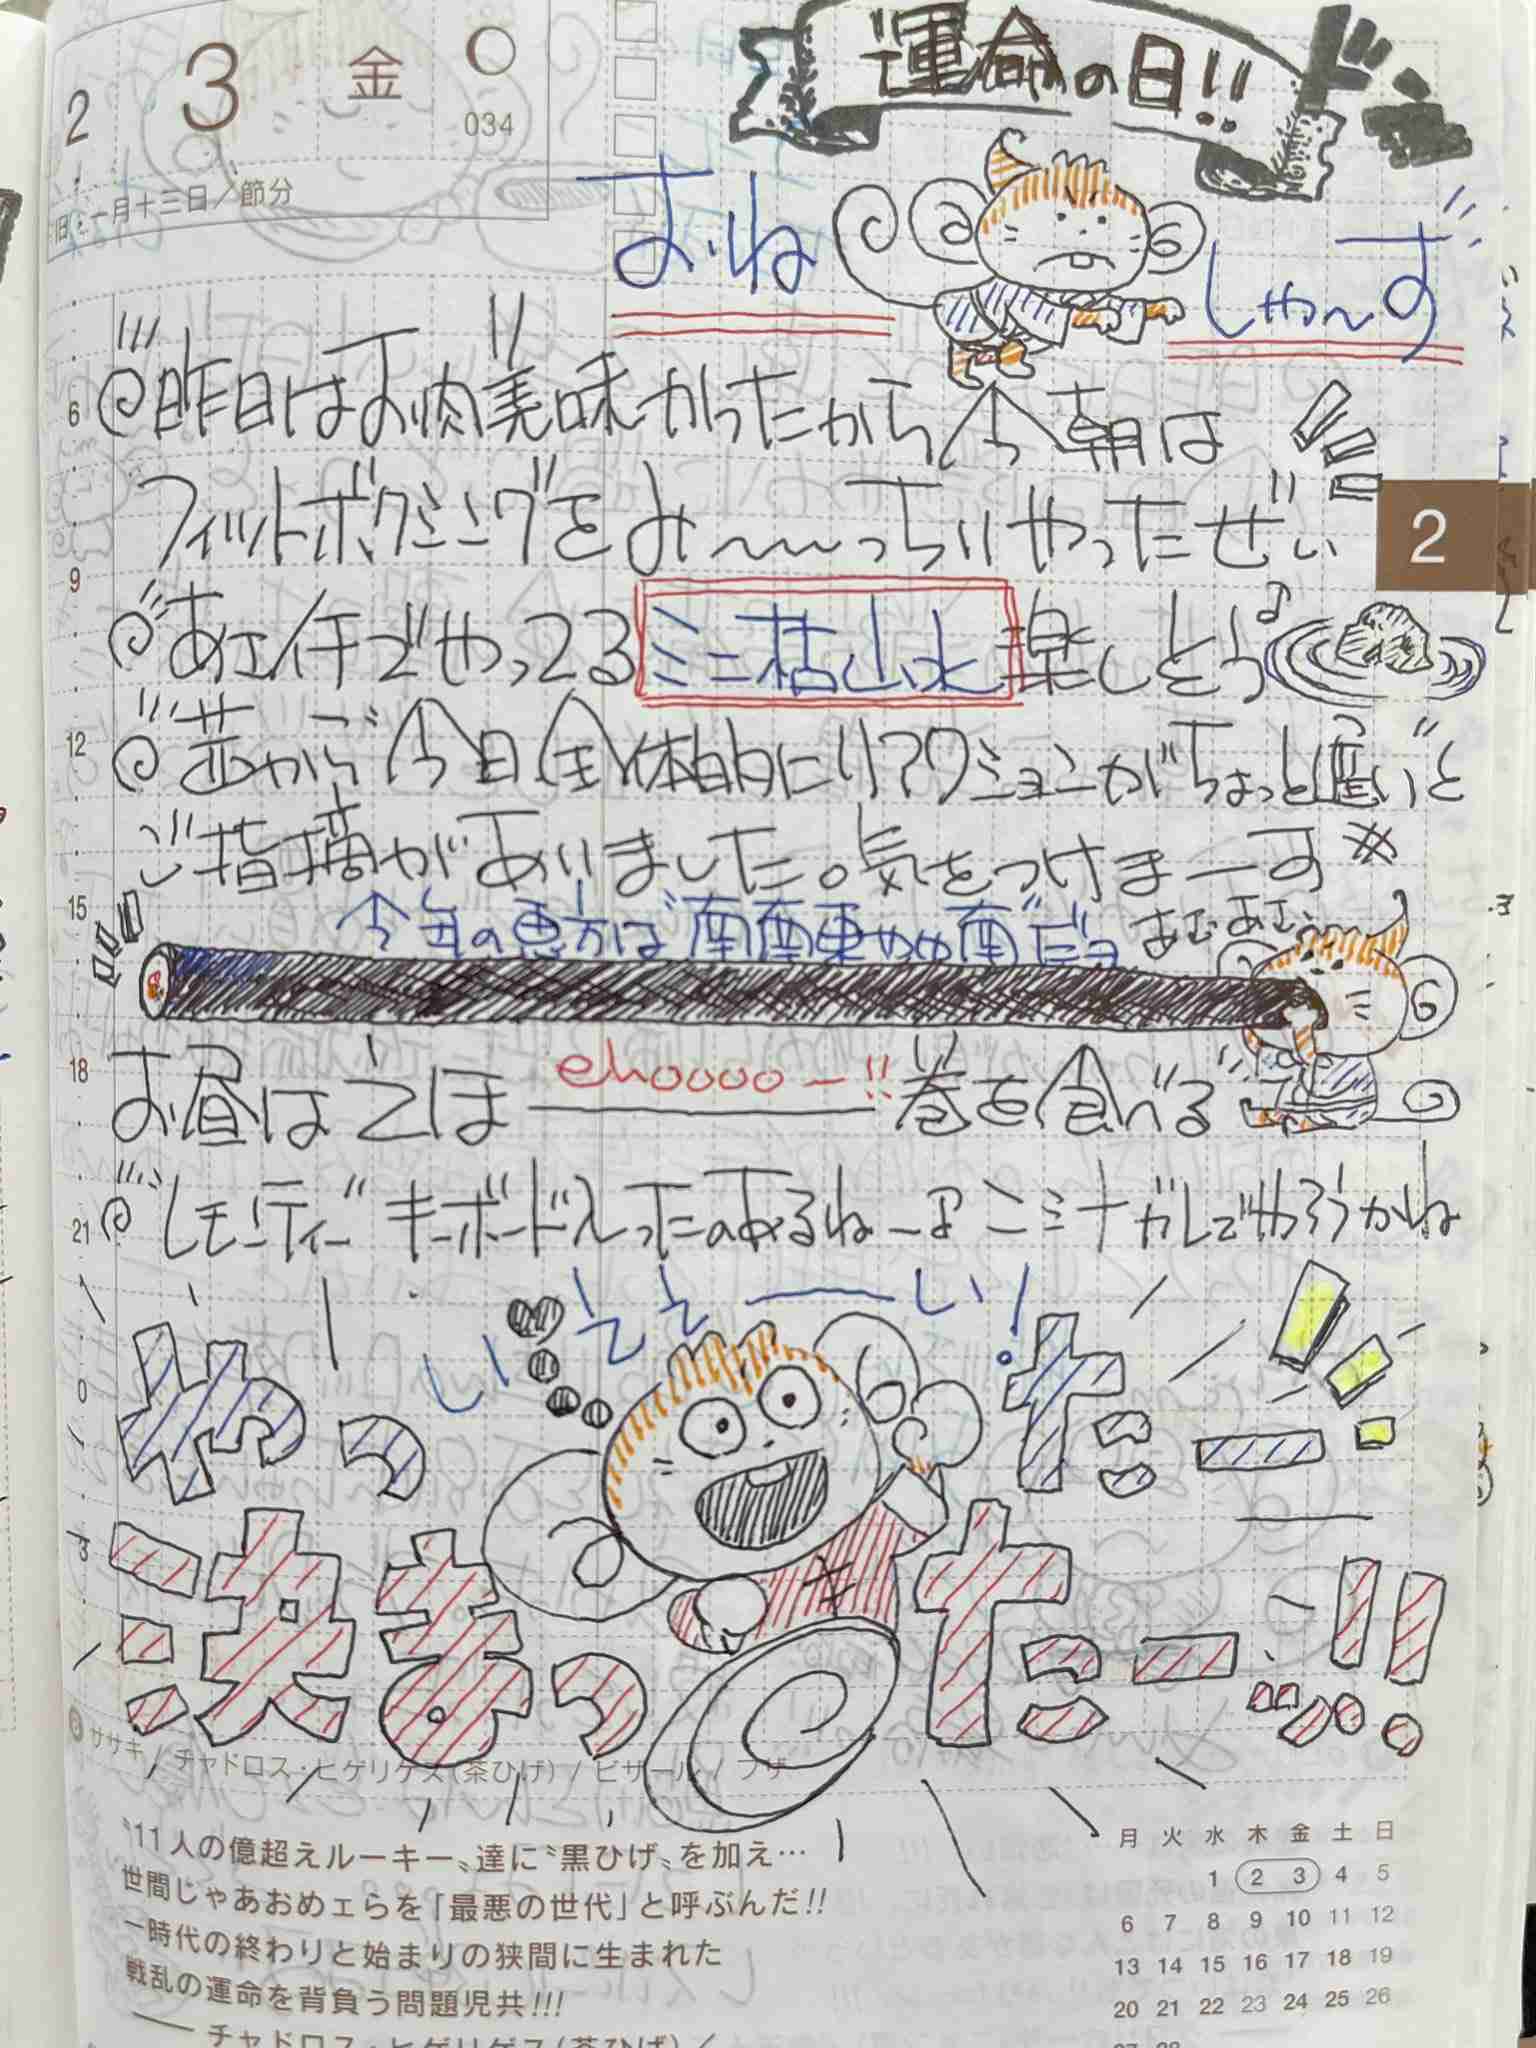 2 3 金 ○
034
旧:一月十三日/節分
運命の日!! ドン
おね しゃ〜す
昨日はお肉美味かったから今朝は
フィットボクシングをみ〜〜っちりやったぜぃ
2
でやってるミニ枯山水楽しとう♪
昔から今日全体的にリアクションがちょっと
ご指摘がありました。気をつけまーす
今年の恵方は南南東やや南だョ
あむあむ
お昼はえほ ehoooo-!! 巻を食べる
レモンティーキーボード
いええーい!
やったー
決まったー!!
6
9
12
15
18
21
0
3
ササキ/チャドロス・ヒゲリゲス(茶ひげ)/ビザール/フザ
"11人の億超えルーキー"達に"黒ひげ"を加え…
世間じゃあおめェらを「最悪の世代」と呼ぶんだ!!
一時代の終わりと始まりの狭間に生まれた
戦乱の運命を背負う問題児共!!!
── チャドロス・ヒゲリゲス(茶ひげ)/
月 火 水 木 金 土 日
1 2 3 4 5
6 7 8 9 10 11 12
13 14 15 16 17 18 19
20 21 22 23 24 25 26
27 28